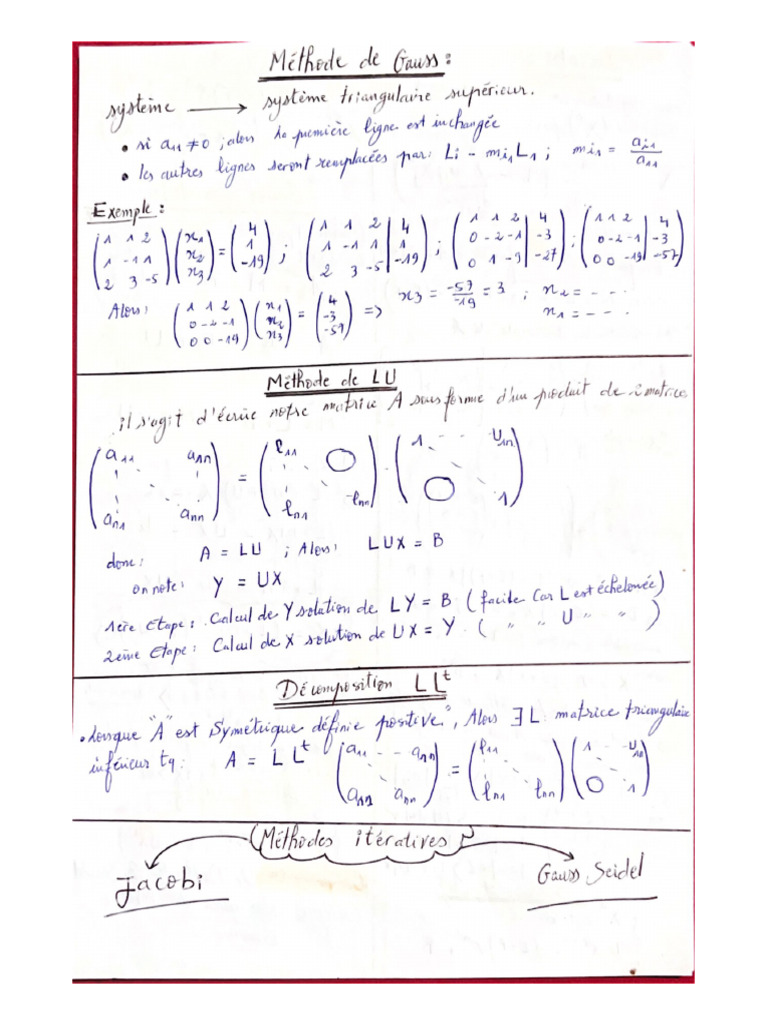 Méthode de Gauss :
système → système triangulaire supérieur.
• si a₁₁ ≠ 0 ; alors la première ligne est inchangée
• les autres lignes seront remplacées par : Li - mi₁L₁ ; mi₁ = ai₁/a₁₁
Exemple :
(1 1 2 ; 1 -1 1 ; 2 3 -5) (x₁ ; x₂ ; x₃) = (4 ; 1 ; -19) ; (1 1 2 | 4 ; 1 -1 1 | 1 ; 2 3 -5 | -19) ; (1 1 2 | 4 ; 0 -2 -1 | -3 ; 0 1 -9 | -27) ; (1 1 2 | 4 ; 0 -2 -1 | -3 ; 0 0 -19 | -57)
Alors : (1 1 2 ; 0 -2 -1 ; 0 0 -19) (x₁ ; x₂ ; x₃) = (4 ; -3 ; -57) => x₃ = -57/-19 = 3 ; x₂ = - - -
x₁ = - - -
Méthode de LU
il s'agit d'écrire notre matrice A sous forme d'un produit de 2 matrice
(a₁₁ a₁n ; an₁ ann) = (l₁₁ O ; ln₁ lnn) . (1 - - U₁n ; O 1)
donc : A = LU ; Alors : LUX = B
on note : Y = UX
1ère Etape : Calcul de Y solution de LY = B (facile car L est échelonée)
2ème Etape : Calcul de X solution de UX = Y (" " U " ")
Décomposition LLᵗ
• Lorsque "A" est Symétrique définie positive", Alors ∃ L matrice triangulaire
inférieur tq : A = LLᵗ (a₁₁ - - ann ; ann ann) = (l₁₁ ; ln₁ lnn) (1 - - U₁n ; O 1)
Méthodes itératives
Jacobi Gauss Seidel